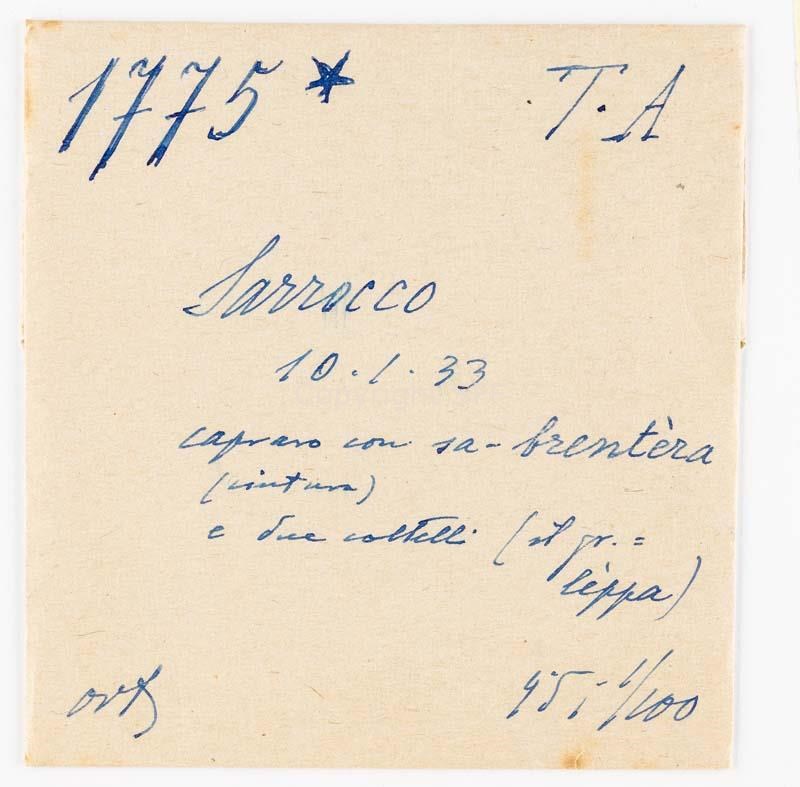 1775* T.A
Sarrocco
10.1.33
capraro con sa-brentèra
(cintura)
e due coltelli (il gr. =
lèppa)
1/100